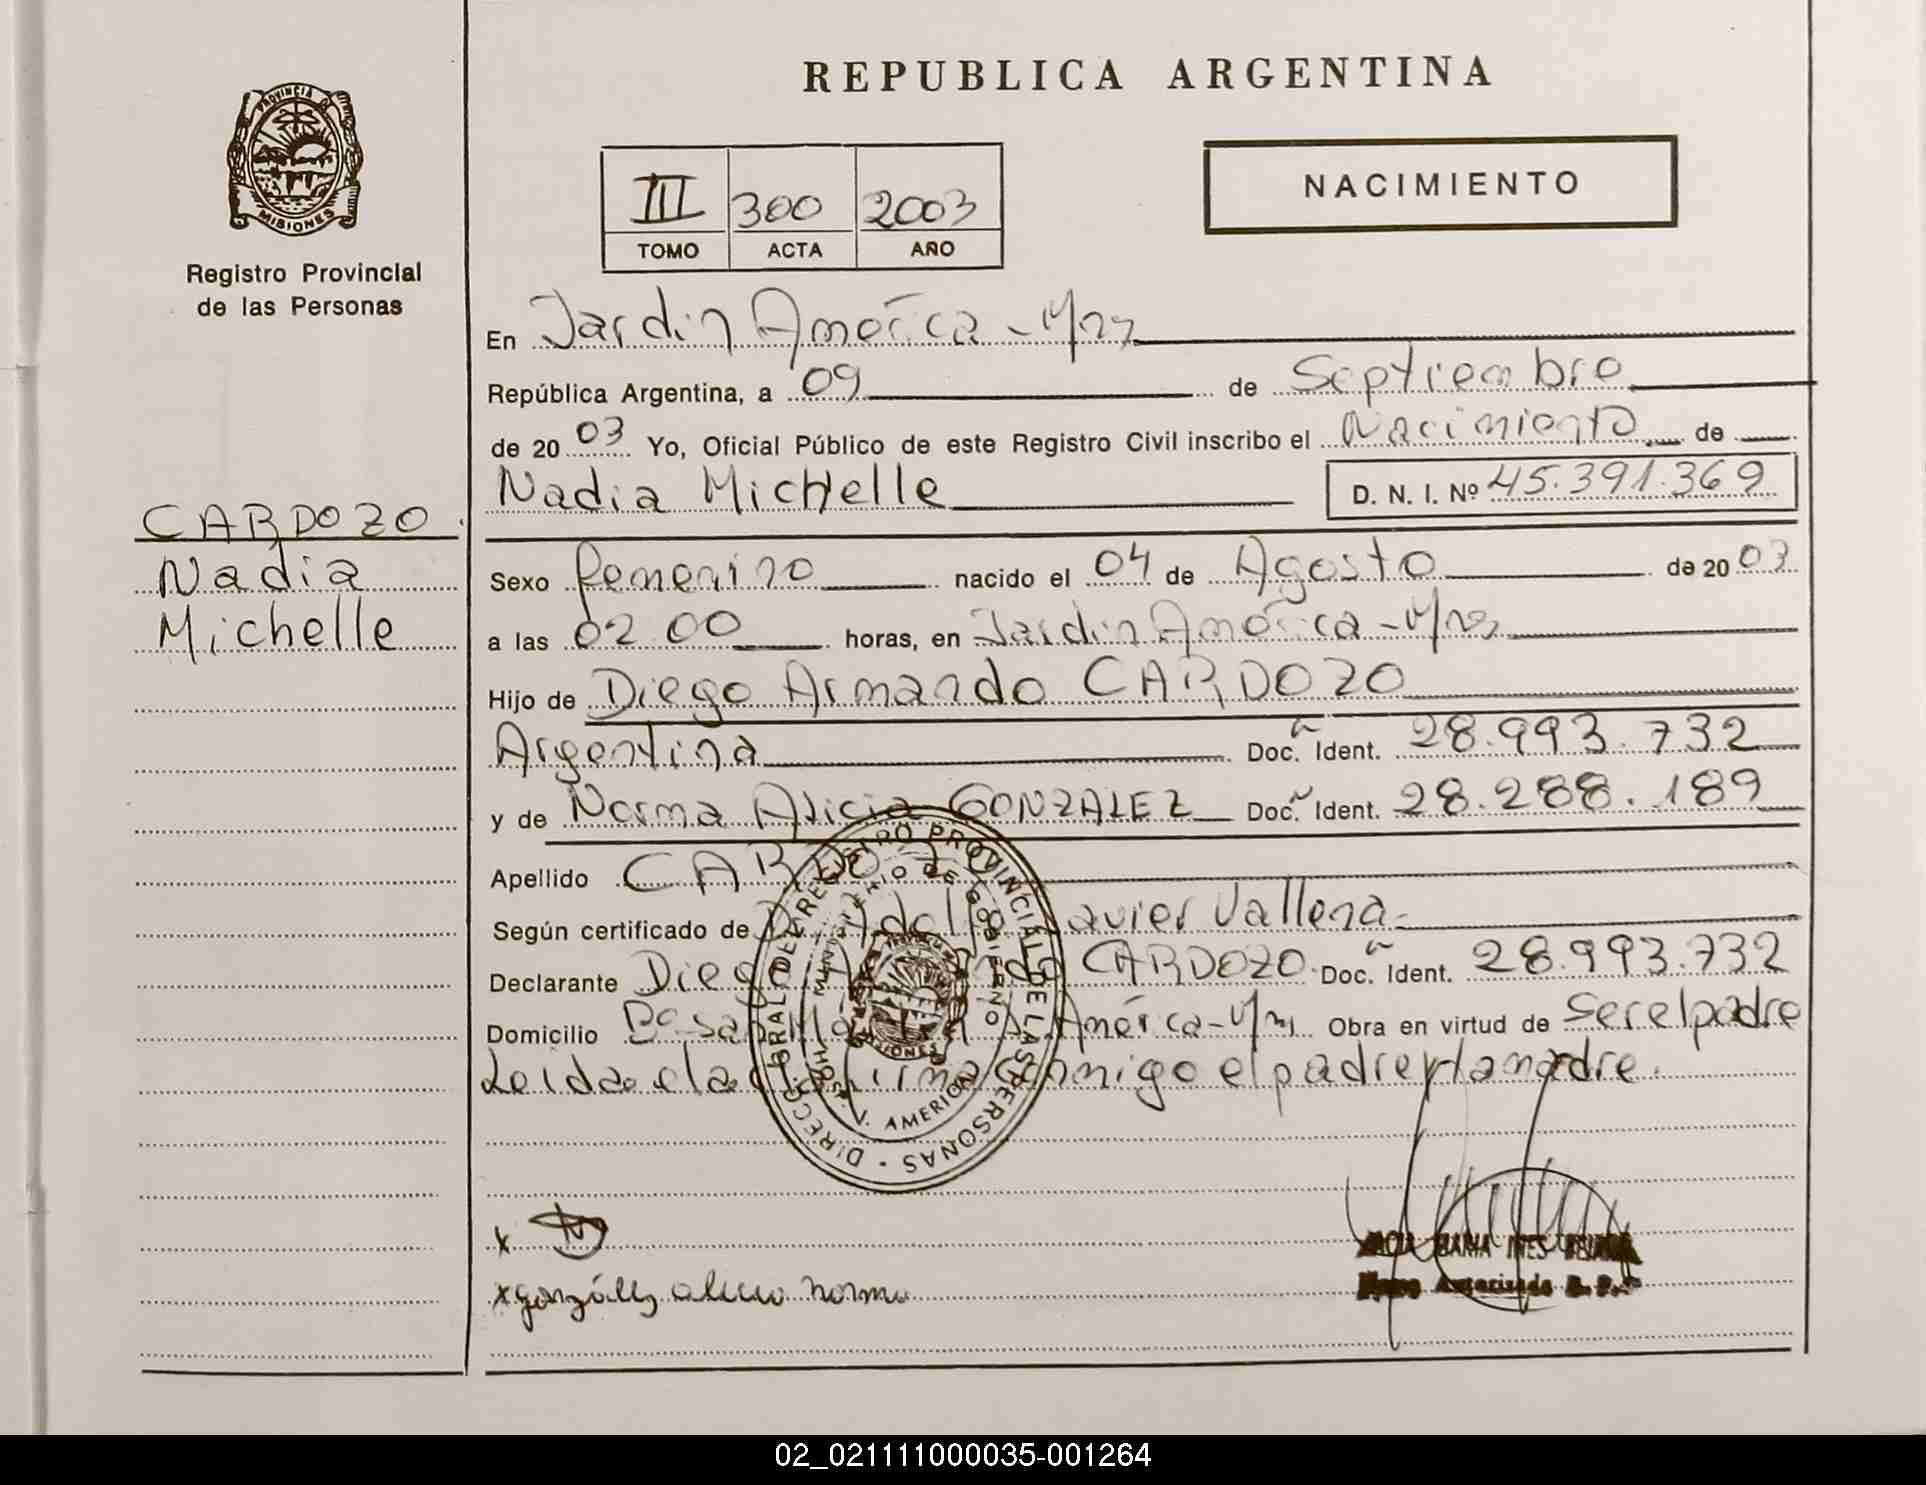 REPUBLICA ARGENTINA
PROVINCIA DE
MISIONES
Registro Provincial
de las Personas
III 300 2003
TOMO ACTA AÑO
NACIMIENTO
En Jardín América - Mnes
República Argentina, a 09 de Septiembre
de 20 03 Yo, Oficial Público de este Registro Civil inscribo el Nacimiento de
Nadia Michelle D. N. I. Nº 45.391.369
CARDOZO
Nadia
Michelle
Sexo femenino nacido el 04 de Agosto de 20 03
a las 02 00 horas, en Jardín América - Mnes
Hijo de Diego Armando CARDOZO
Argentina Doc. Ident. 28.993.732
y de Norma Alicia GONZALEZ Doc. Ident. 28.288.189
Apellido CARDOZO
Según certificado de Javier Vallena
Declarante Diego Armando CARDOZO Doc. Ident. 28.993.732
Domicilio América - Mnes Obra en virtud de ser el padre
Leída el acta firma conmigo el padre y la madre.
DIRECC. GRAL DEL REGISTRO PROVINCIAL DE LAS PERSONAS
MINISTERIO DE GOBIERNO
HOSP. J. AMERICA
MISIONES
x
x gonzález alicia norma
MARIA INES
Autorizado
02_021111000035-001264